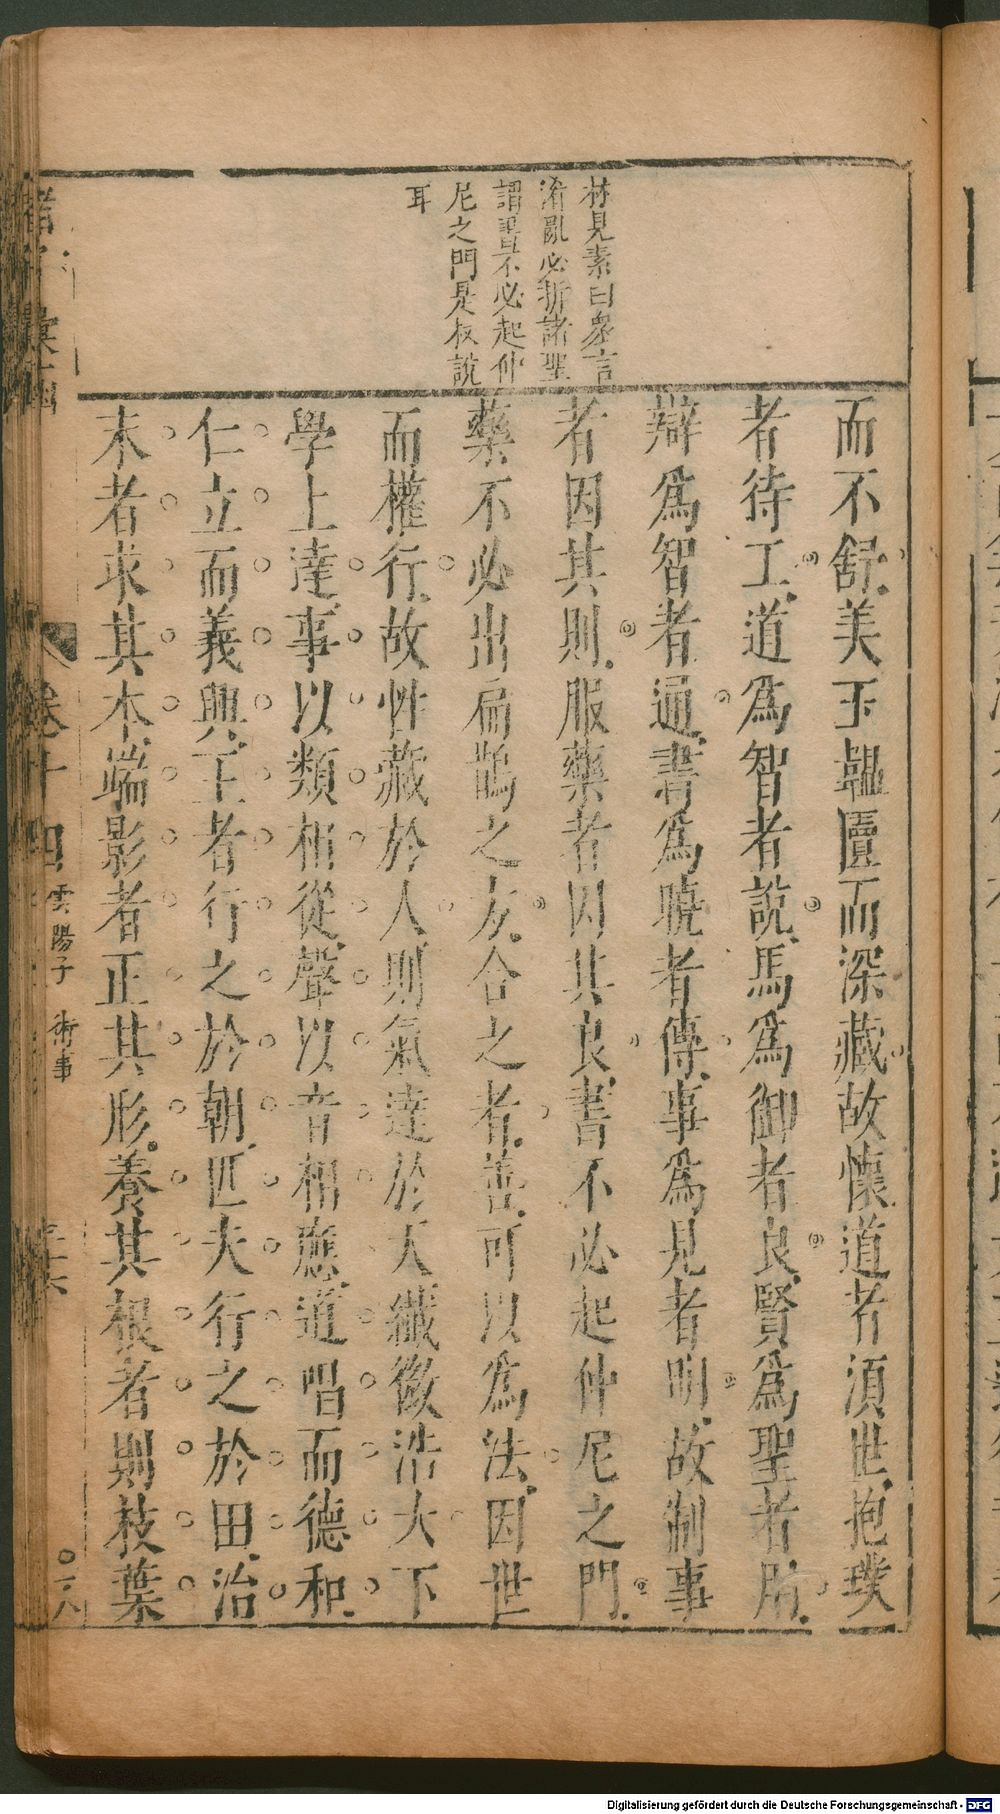 林見素曰衆言
淆亂必折諸聖
謂書不必起仲
尼之門是叔說
耳
而不舒美玉韞匵而深藏故懷道者須世抱璞
者待工道為智者說馬為御者良賢為聖者用
辯為智者通書為曉者傳事為見者明故制事
者因其則服藥者因其良書不必起仲尼之門
藥不必出扁鵲之方合之者善可以為法因世
而權行故性藏於人則氣達於天纖微浩大下
學上達事以類相從聲以音相應道唱而德和
仁立而義興王者行之於朝匹夫行之於田治
末者求其本端影者正其形養其根者則枝葉
卷十四 雲陽子 術事
Digitalisierung gefördert durch die Deutsche Forschungsgemeinschaft - DFG